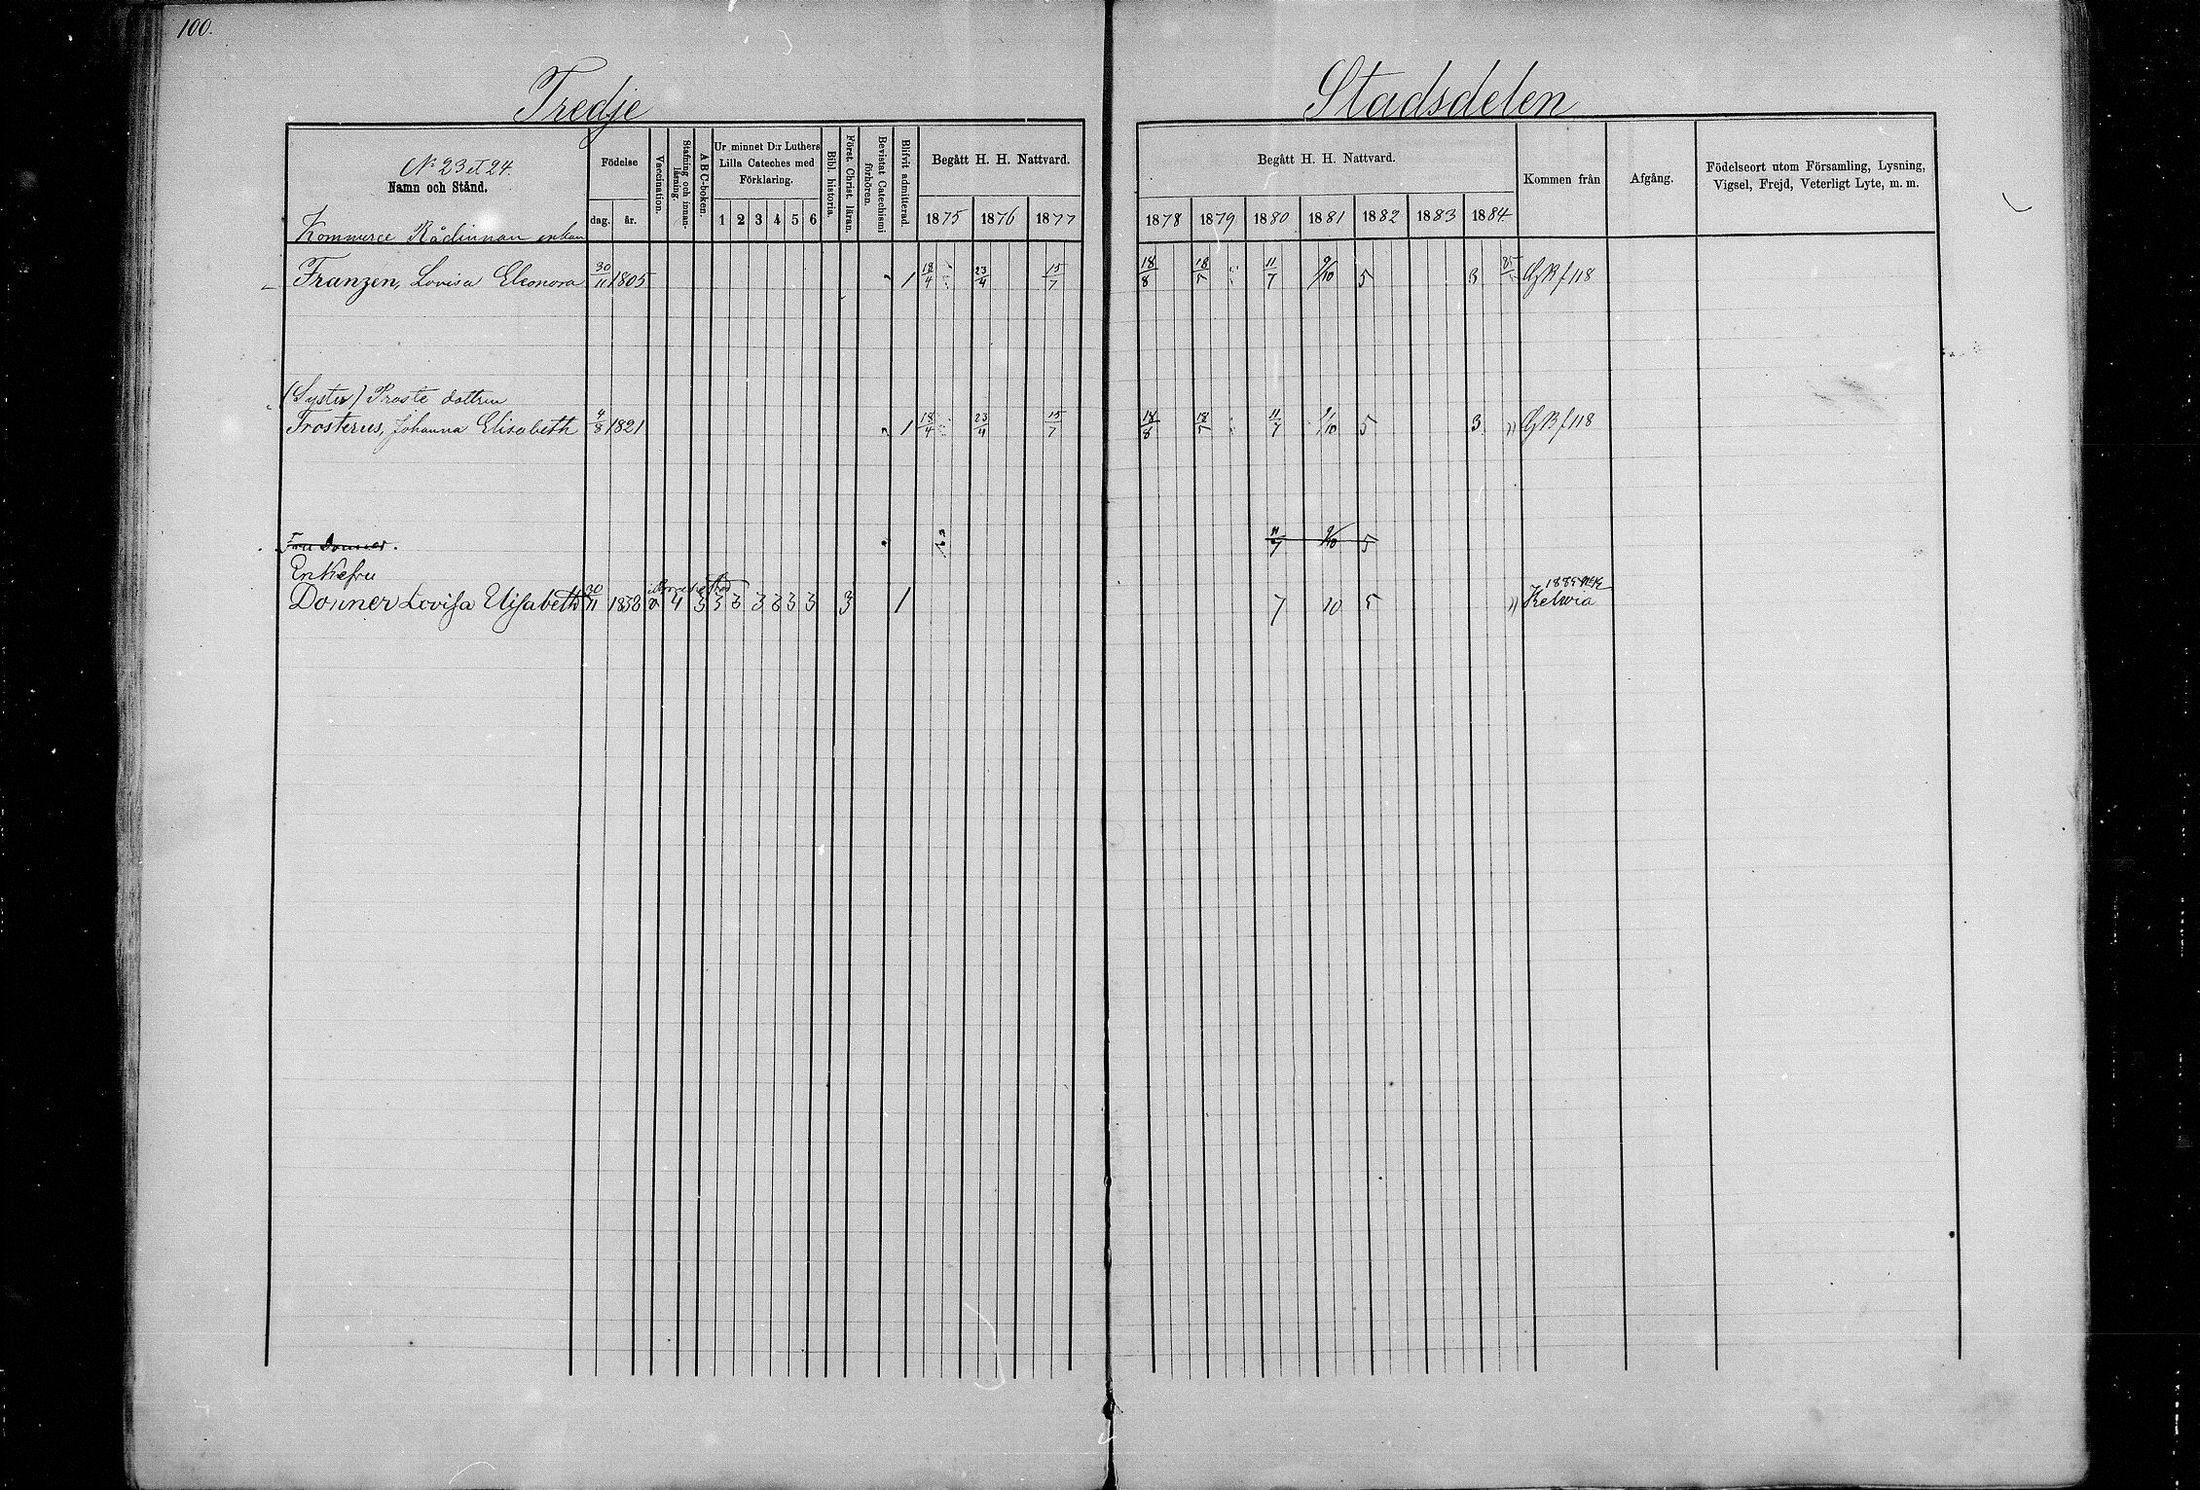 100.
Tredje Stadsdelen
No 23 et 24.
Namn och Stånd.
Födelse
dag. år.
Vaccination.
Stafning och innanläsning.
A B C-boken.
Ur minnet D:r Luthers Lilla Cateches med Förklaring.
1 2 3 4 5 6
Bibl. historia.
Först. Christ. läran.
Bevistat Catechismi förhören.
Blifvit admitterad.
Begått H. H. Nattvard.
1875 1876 1877
Begått H. H. Nattvard.
1878 1879 1880 1881 1882 1883 1884
Kommen från
Afgång.
Födelseort utom Församling, Lysning, Vigsel, Frejd, Veterligt Lyte, m. m.
Kommerce Rådinnan enkan
Franzen, Lovisa Eleonora 30/11 1805 1 18/4 23/4 15/7 18/8 18/5 11/7 9/10 5 3 f 118
(Syster) Proste dottren
Trosterus, Johanna Elisabeth 4/8 1821 1 18/4 23/4 15/7 18/8 18/5 11/7 9/10 5 3 " f 118
Fru Donner. 11/7 9/10 5
Enkefru
Donner Lovisa Elisabeth 30/11 1838 v 4 3 3 3 3 3 3 3 3 1 7 10 5 " Kelvia